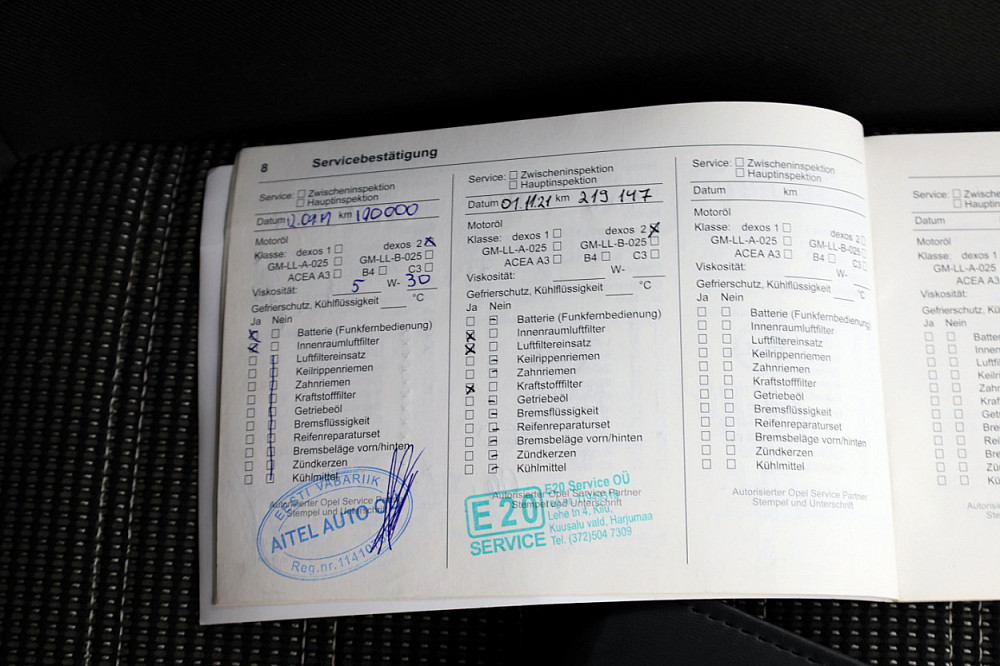 8 Servicebestätigung
Service: Zwischeninspektion
Hauptinspektion
Datum km 190000
Motoröl
Klasse: dexos 1 dexos 2
GM-LL-A-025 GM-LL-B-025
ACEA A3 B4 C3
Viskosität: 5 W- 30
Gefrierschutz, Kühlflüssigkeit °C
Ja Nein
Batterie (Funkfernbedienung)
Innenraumluftfilter
Luftfiltereinsatz
Keilrippenriemen
Zahnriemen
Kraftstofffilter
Getriebeöl
Bremsflüssigkeit
Reifenreparaturset
Bremsbeläge vorn/hinten
Zündkerzen
Kühlmittel
Autorisierter Opel Service Partner
Stempel und Unterschrift
EESTI VABARIIK
AITEL AUTO OÜ
Reg.nr.
Service: Zwischeninspektion
Hauptinspektion
Datum 01.11.21 km 219 147
Motoröl
Klasse: dexos 1 dexos 2
GM-LL-A-025 GM-LL-B-025
ACEA A3 B4 C3
Viskosität: W-
Gefrierschutz, Kühlflüssigkeit °C
Ja Nein
Batterie (Funkfernbedienung)
Innenraumluftfilter
Luftfiltereinsatz
Keilrippenriemen
Zahnriemen
Kraftstofffilter
Getriebeöl
Bremsflüssigkeit
Reifenreparaturset
Bremsbeläge vorn/hinten
Zündkerzen
Kühlmittel
Autorisierter Opel Service Partner
Stempel und Unterschrift
E20
SERVICE
E20 Service OÜ
Lehe tn 4, Kiiu,
Kuusalu vald, Harjumaa
Tel. (372)504 7309
Service: Zwischeninspektion
Hauptinspektion
Datum km
Motoröl
Klasse: dexos 1 dexos 2
GM-LL-A-025 GM-LL-B-025
ACEA A3 B4 C3
Viskosität: W-
Gefrierschutz, Kühlflüssigkeit °C
Ja Nein
Batterie (Funkfernbedienung)
Innenraumluftfilter
Luftfiltereinsatz
Keilrippenriemen
Zahnriemen
Kraftstofffilter
Getriebeöl
Bremsflüssigkeit
Reifenreparaturset
Bremsbeläge vorn/hinten
Zündkerzen
Kühlmittel
Autorisierter Opel Service Partner
Stempel und Unterschrift
Service:
Datum
Motoröl
Klasse: dexos 1
GM-LL-A-025
ACEA A3
Viskosität:
Gefrierschutz,
Ja Nein